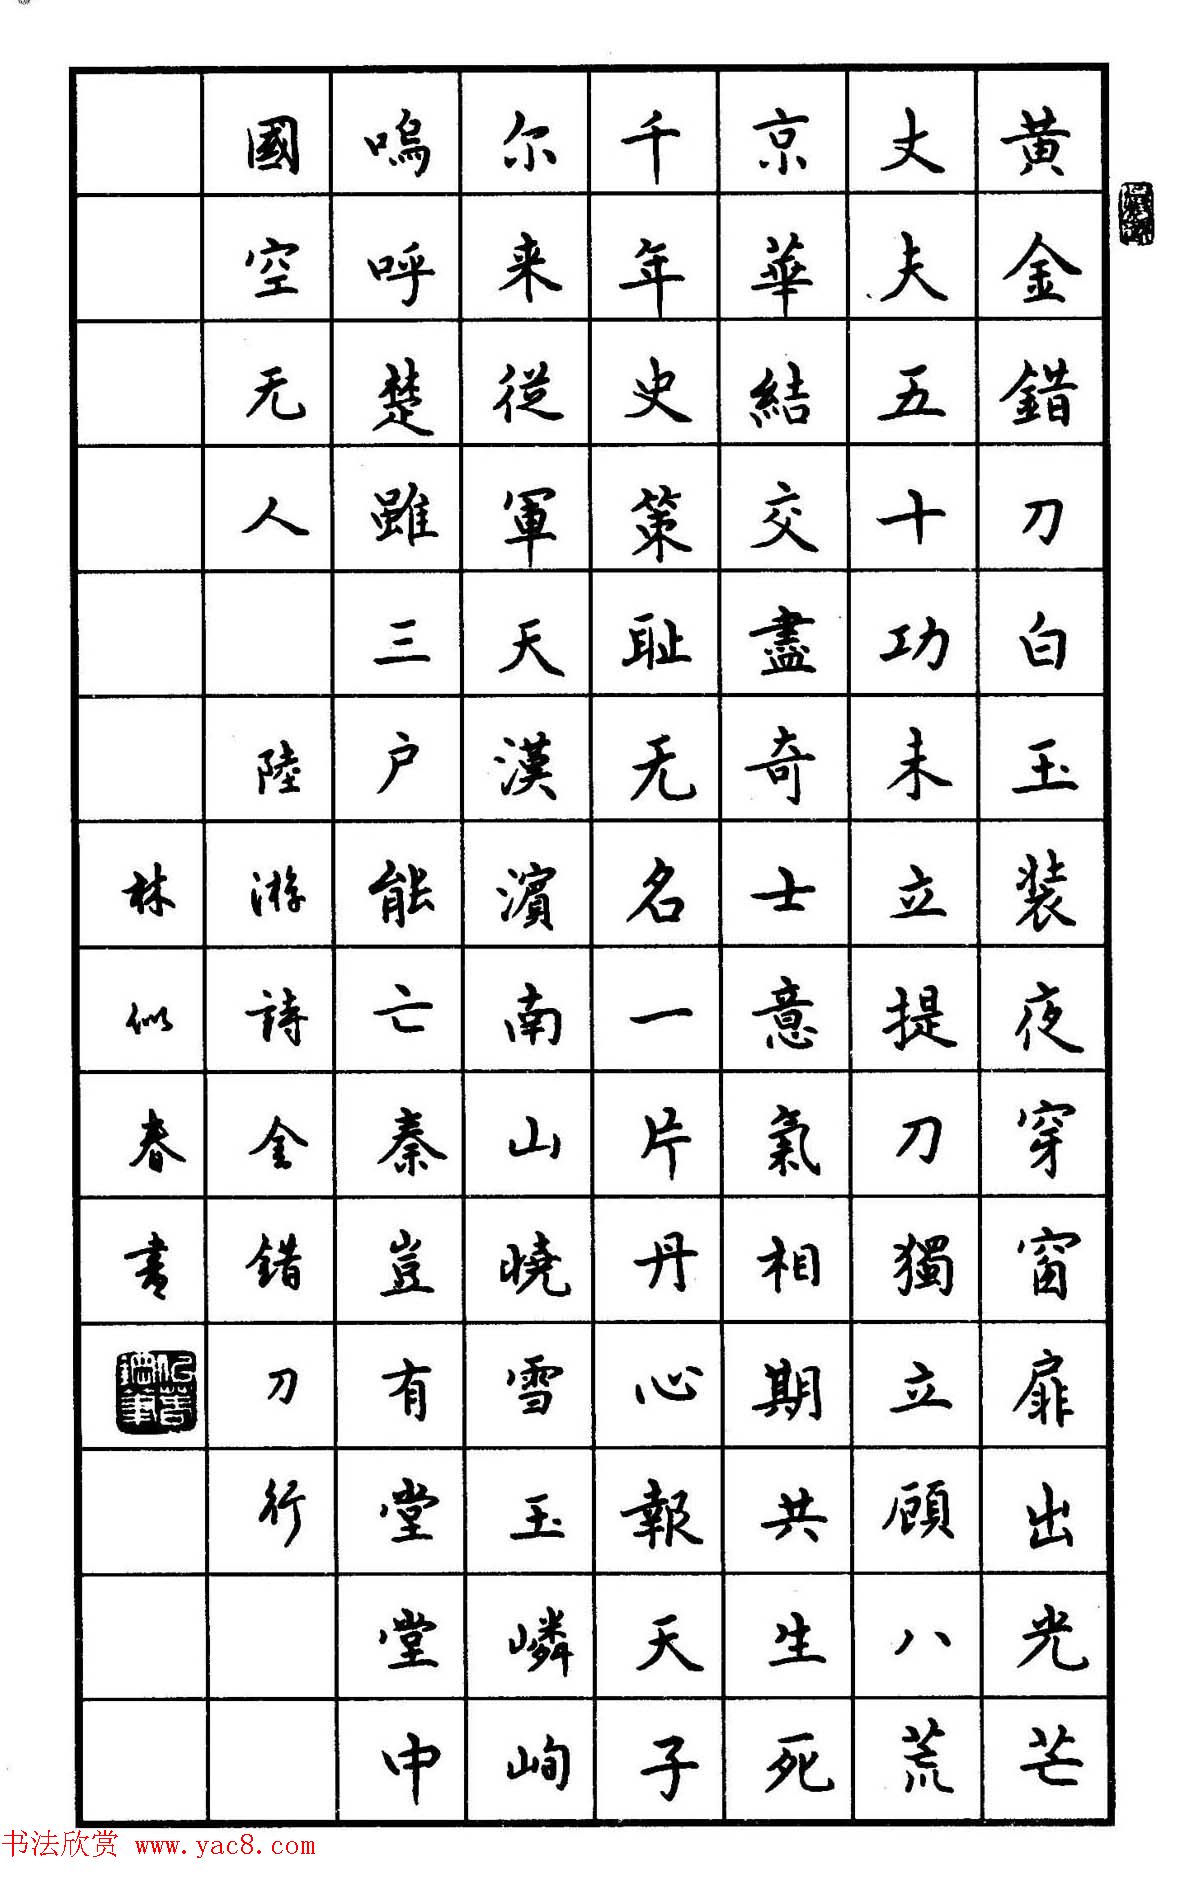 黄金錯刀白玉装夜穿窗扉出光芒
丈夫五十功未立提刀獨立顧八荒
京華結交盡奇士意氣相期共生死
千年史策耻无名一片丹心報天子
尔来從軍天漢濱南山曉雪玉嶙峋
嗚呼楚雖三户能亡秦豈有堂堂中
國空无人 陸游詩金錯刀行
林似春書
书法欣赏 www.yac8.com